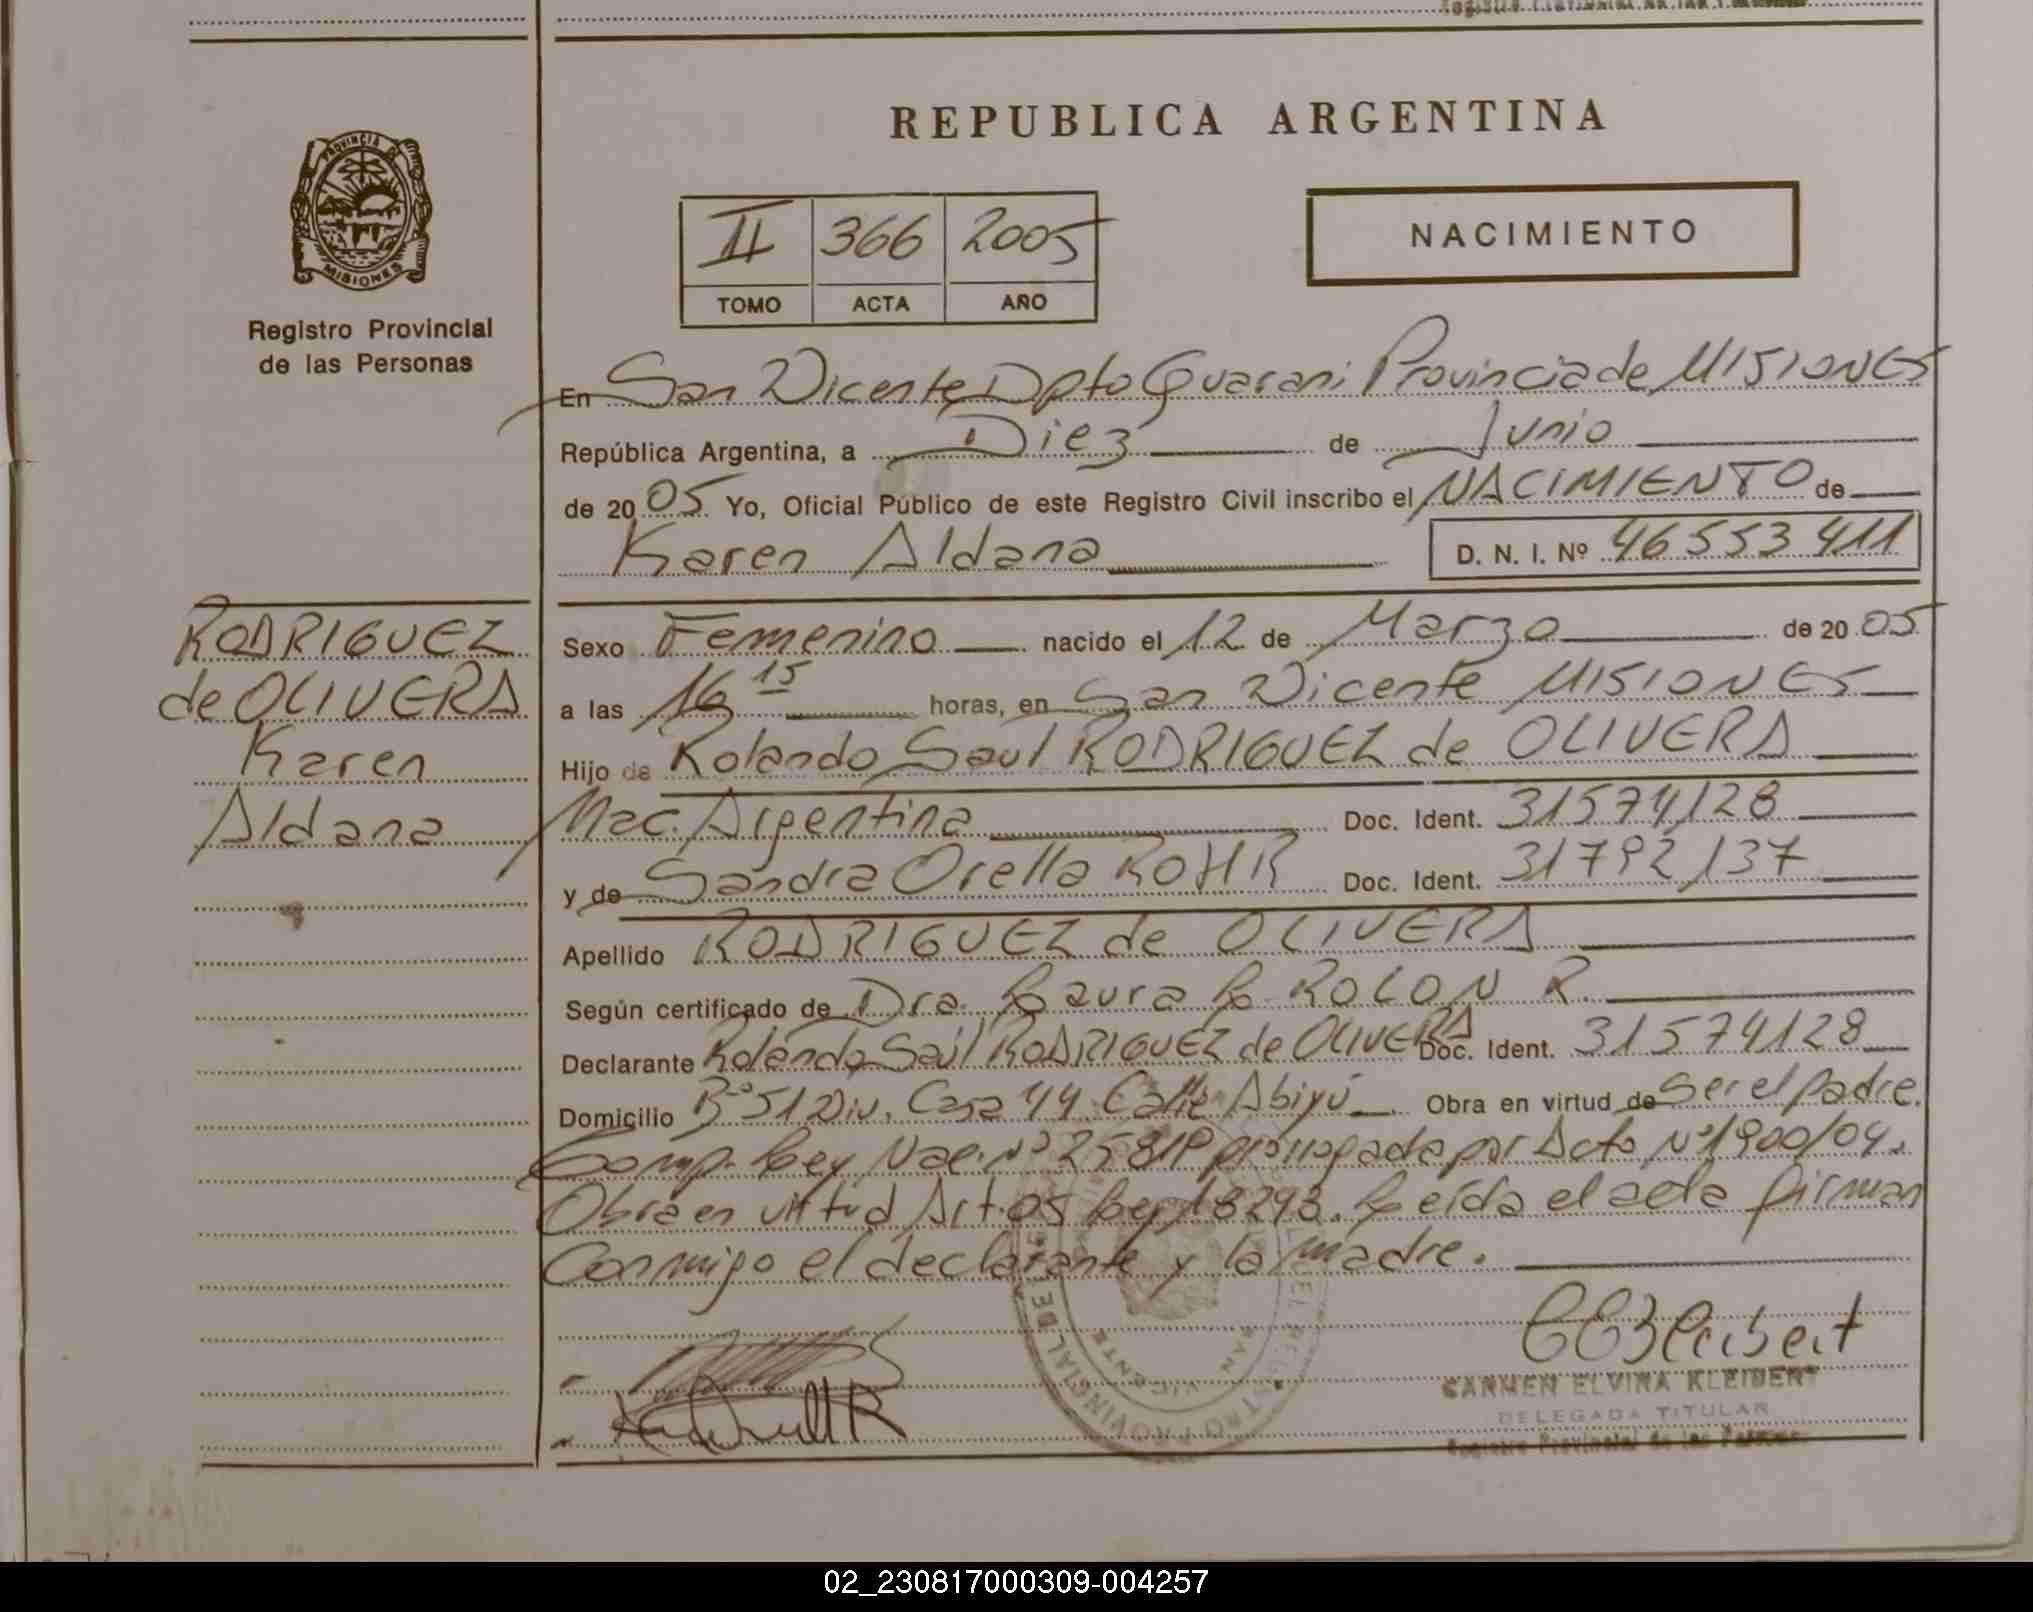 REPUBLICA ARGENTINA
PROVINCIA DE
MISIONES
Registro Provincial
de las Personas
II 366 2005
TOMO ACTA AÑO
NACIMIENTO
En San Vicente Dpto Guarani Provincia de MISIONES
República Argentina, a Diez de Junio
de 20 05 Yo, Oficial Público de este Registro Civil inscribo el NACIMIENTO de
Karen Aldana D. N. I. Nº 46553411
RODRIGUEZ
de OLIVERA
Karen
Aldana
Sexo Femenino nacido el 12 de Marzo de 20 05
a las 16 15 horas, en San Vicente MISIONES
Hijo de Rolando Saul RODRIGUEZ de OLIVERA
Nac. Argentina Doc. Ident. 31574128
y de Sandra Orella ROHR Doc. Ident. 31792137
Apellido RODRIGUEZ de OLIVERA
Según certificado de Dra. Laura L. ROLON R.
Declarante Rolando Saúl RODRIGUEZ de OLIVERA Doc. Ident. 31574128
Domicilio Bº 51 Viv. Casa 44 Calle Abiyú Obra en virtud de Ser el padre.
Comp. Ley Nac. Nº 25819 prorrogada por Dcto Nº 1900/04.
Obra en virtud Art. 05 Ley 18293. Leída el acta firman
Conmigo el declarante y la madre.
CARMEN ELVIRA KLEIBERT
DELEGADA TITULAR
Registro Provincial de las Personas
REGISTRO PROVINCIAL DE
SAN VICENTE
02_230817000309-004257